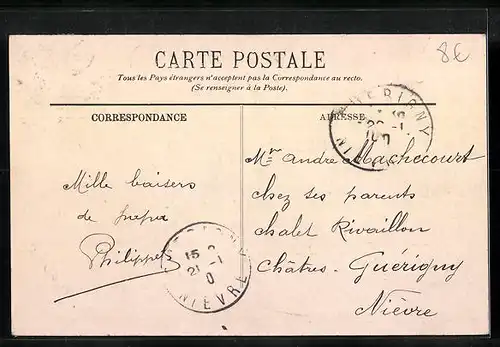 8€
CARTE POSTALE
Tous les Pays étrangers n'acceptent pas la Correspondance au recto.
(Se renseigner à la Poste).
CORRESPONDANCE
ADRESSE
GUÉRIGNY
Mr André Machecourt
chez ses parents
chalet Rivaillon
Châtres - Guérigny
Nièvre
Mille baisers
de
Philippe
15
21 -1
0
NIÈVRE